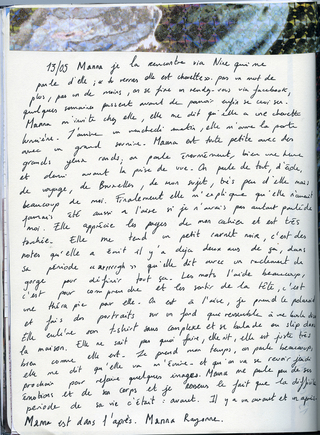 13/05 Manna je la rencontre via Nice qui me
parle d'elle ; « tu verras elle est chouette ». pas un mot de
plus, pas un de moins, on se fixe un rendez-vous via facebook,
quelques semaines passent avant de pouvoir enfin se croiser.
Manna m'invite chez elle, elle me dit qu'elle a une chouette
lumière. J'arrive un vendredi matin, elle m'ouvre la porte
avec un grand sourire. Manna est toute petite avec des
grands yeux ronds, on parle énormément, bien une heure
et demi avant la prise de vue. On parle de tout, d'école,
de voyage, de Bruxelles, de mon sujet, très peu d'elle mais
beaucoup de moi. Finalement elle m'explique qu'elle n'aurait
jamais été aussi à l'aise si je n'avais pas autant parlé de
moi. Elle apprécie les pages de mon cahier et est très
touchée. Elle me tend un petit carnet noir, c'est des
notes qu'elle a écrit il y a déjà deux ans de ça, dans
sa période qu'elle dit avec un raclement de
gorge pour définir tout ça. Les mots l'aide beaucoup,
c'est pour comprendre et les sortir de la tête, c'est
une thérapie pour elle. On est à l'aise, je prend le polaroid
et fais des portraits sur un fond qui ressemble à
Elle enlève son tshirt sans complexe et se balade en slip dans
la maison. Elle ne sait pas quoi faire, elle est juste très
bien comme elle est. Je prend mon temps, on parle beaucoup,
elle me dit qu'elle va m'écrire et qu'on va se revoir jeudi
prochain pour refaire quelques images. Manna me parle peu de ses
émotions et de son corps et je ressens le fait que la difficile
période de sa vie c'était : avant. Il y a un avant et un après
Manna est dans l'après. Manna